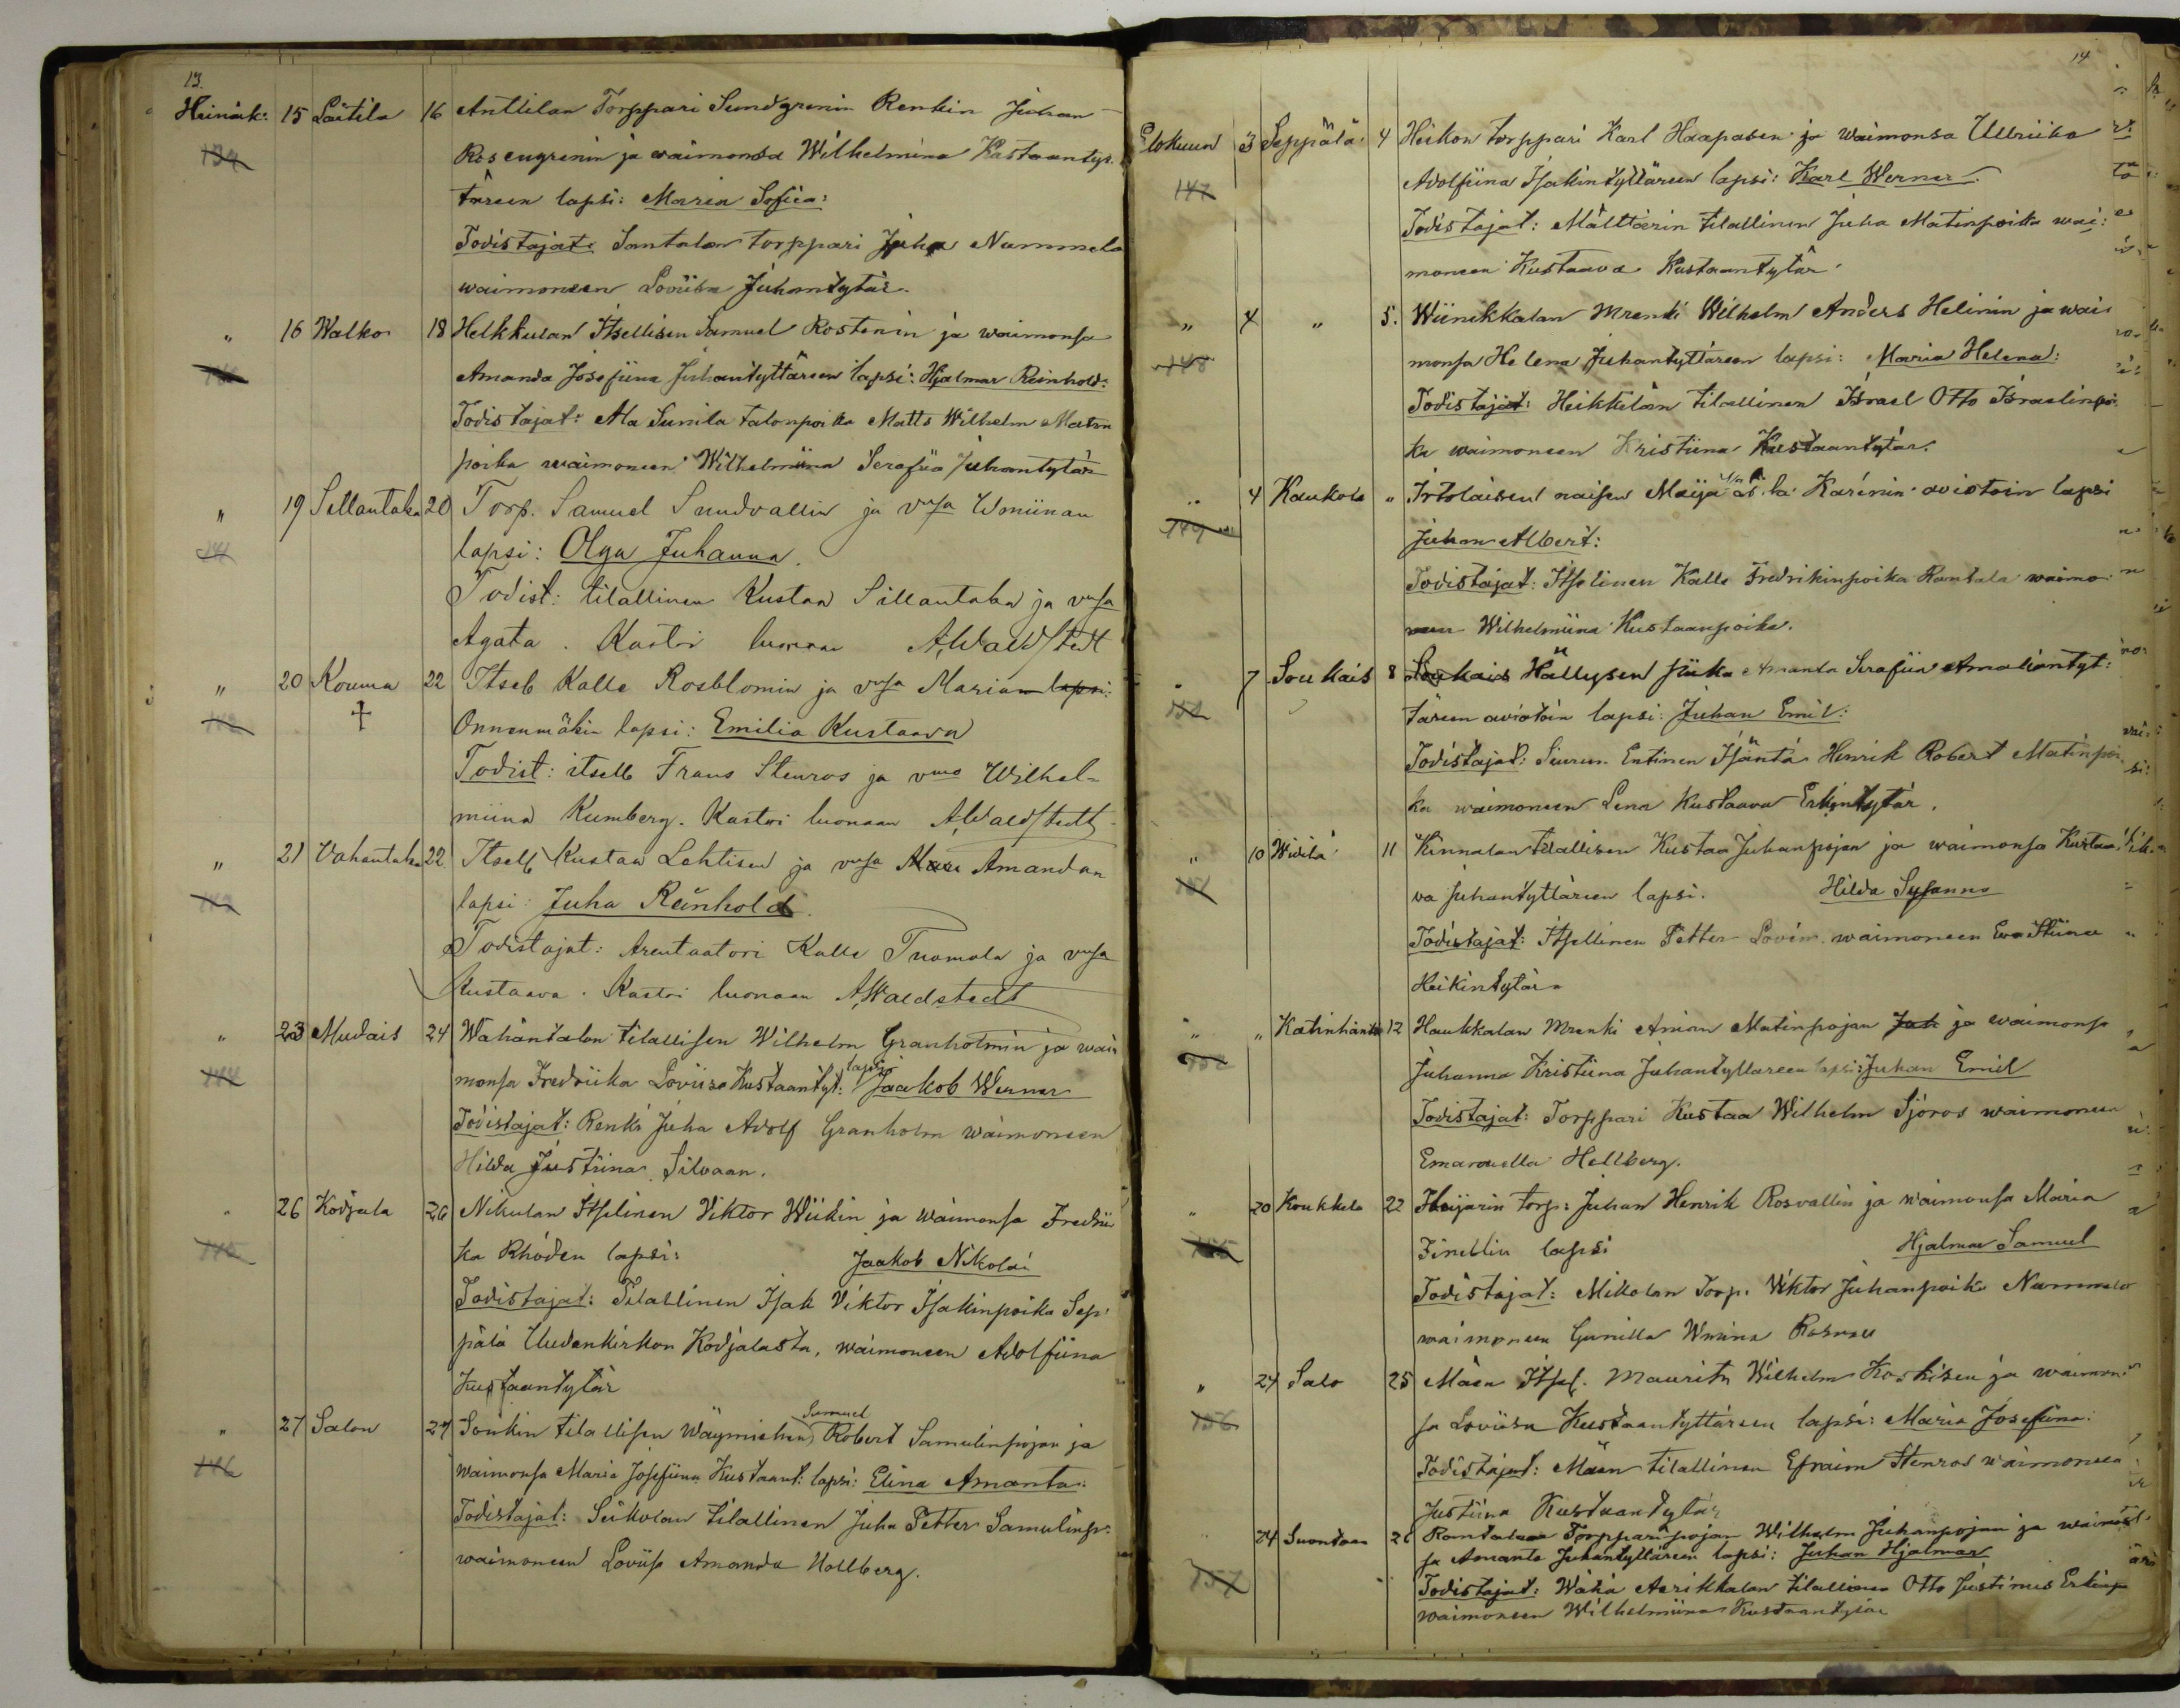 13.
Heinäk: 15 Laitila 16 Anttilan Torppari Sundgrenin Renkin Juhan
139 Rosengrenin ja waimonsa Wilhelmina Kustaantyt-
täreen lapsi: Maria Sofiia:
Todistajat: Santalan torppari Juha Nummela
waimoneen Loviisa Juhantytär.
" 16 Walko 18 Helkkulan Itsellisen Samuel Rostenin ja waimonsa
Amanda Josefiina Juhantyttäreen lapsi: Hjalmar Reinhold:
Todistajat: Ala Sunila talonpoika Matts Wilhelm Matin
poika waimoneen Wilhelmiina Serafiia Juhantytär
" 19 Sillantaka 20 Torp. Samuel Sundvallin ja vmsa Wmiinan
141 lapsi: Olga Juhanna.
Todist: tilallinen Kustaa Sillantaka ja vmsa
Agata. Kastoi luonaan A. Waldstedt
" 20 Kouma 22 Itsell Kalle Rosblomin ja vmsa Marian lapsi:
142 † Onnenmäkin lapsi: Emilia Kustaava
Todist: itsell Frans Stenros ja vmo Wilhel-
miina Kumberg. Kastoi luonaan A. Waldstedt
" 21 Vahantaka 22 Itsell Kustaa Lehtisen ja vmsa Amandan
143 lapsi: Juha Reinhold.
Todistajat: Arentaatori Kalle Tuomola ja vmsa
Kustaava. Kastoi luonaan A. Waldstedt
" 23 Mudais 24 Wahäntalon tilallisen Wilhelm Granholmin ja wai
144 monsa Fredriika Loviisa Kustaantyt: lapsi: Jaakob Werner
Todistajat: Renki Juha Adolf Granholm waimoneen
Hilda Justiina Silvaan.
" 26 Kodjala 26 Nikulan Itselinen Viktor Wiikin ja waimonsa Fredrii
145 ka Rhóden lapsi: Jaakob Nikolai
Todistajat: Tilallinen Isak Viktor Isakinpoika Sep-
pälä Uudenkirkon Kodjalasta, waimoneen Adolfiina
Kustaantytär
" 27 Salon 27 Soukin tilallisen Samuel Robert Samulinpojan ja
146 waimonsa Maria Josefiina Kustaant: lapsi: Elina Amanta:
Todistajat: Seikolan tilallinen Juha Petter Samulinp:
waimoneen Loviisa Amanda Hollberg.
14
Elokuun 3 Seppälä 4 Heikon torppari Karl Haapasen ja waimonsa Ullriika
147 Adolfiina Isakintyttäreen lapsi: Karl Werner.
Todistajat: Mälttärin tilallinen Juha Matinpoika wai:
moneen Kustaava Kustaantytär.
" 4 " 5. Wiinikkalan Wilhelm Anders Helinin ja wai
148 monsa Helena Juhantyttäreen lapsi: Maria Helena:
Todistajat: Heikkilän tilallinen Israel Otto Israelinpoi
ka waimoneen Kristiina Kustaantytär.
" 4 Kaukola " Irtolaisen naisen Maija Karénin aviotoin lapsi
149 Juhan Albert:
Todistajat: Itselinen Kalle Fredrikinpoika Rantala waimo
neen Wilhelmiina Kustaanpoika.
" 7 Soukais 8 Soukais Hällysen piika Amanda Serafiia Amaliantyt:
täreen aviotoin lapsi: Juhan Emil:
Todistajat: Entinen Isäntä Henrik Robert Matinpoi
ka waimoneen Lena Kustaava Erkintytär.
" 10 11 Kinnalan tilallisen Kustaa Juhanpojan ja waimonsa Kustaa
va Juhantyttäreen lapsi. Hilda Susanna
Todistajat: Itsellinen Petter Lovén waimoneen Eva Stiina
Heikintytär
" " Katinhäntä 12 Haukkalan Matinpojan ja waimonsa
Juhanna Kristiina Juhantyttäreen lapsi: Juhan Emil
Todistajat: Torppari Kustaa Wilhelm Sjöros waimoneen
Emanuella Hellberg.
" 20 Koukkela 22 torp: Juhan Henrik Rosvallin ja waimonsa Maria
lapsi Hjalmar Samuel
Todistajat: Mikolan Torp. Viktor Juhanpoika Nummela
waimoneen Gunilla Wmina
" 24 Salo 25 Mäen Itsel. Mauritz Wilhelm Koskisen ja waimon
156 sa Loviisa Kustaantyttäreen lapsi: Maria Josefiina:
Todistajat: Mäen tilallinen Efraim Stenros waimoneen
Justiina Kustaantytär
24 Suontaan 26 Rantalan Torpparinpojan Wilhelm Juhanpojan ja waimon
157 sa Amanta Juhantyttäreen lapsi: Juhan Hjalmar
Todistajat: Wähä Aerikkalan tilallinen Otto Justinus Erkinp
waimoneen Wilhelmiina Kustaantytär